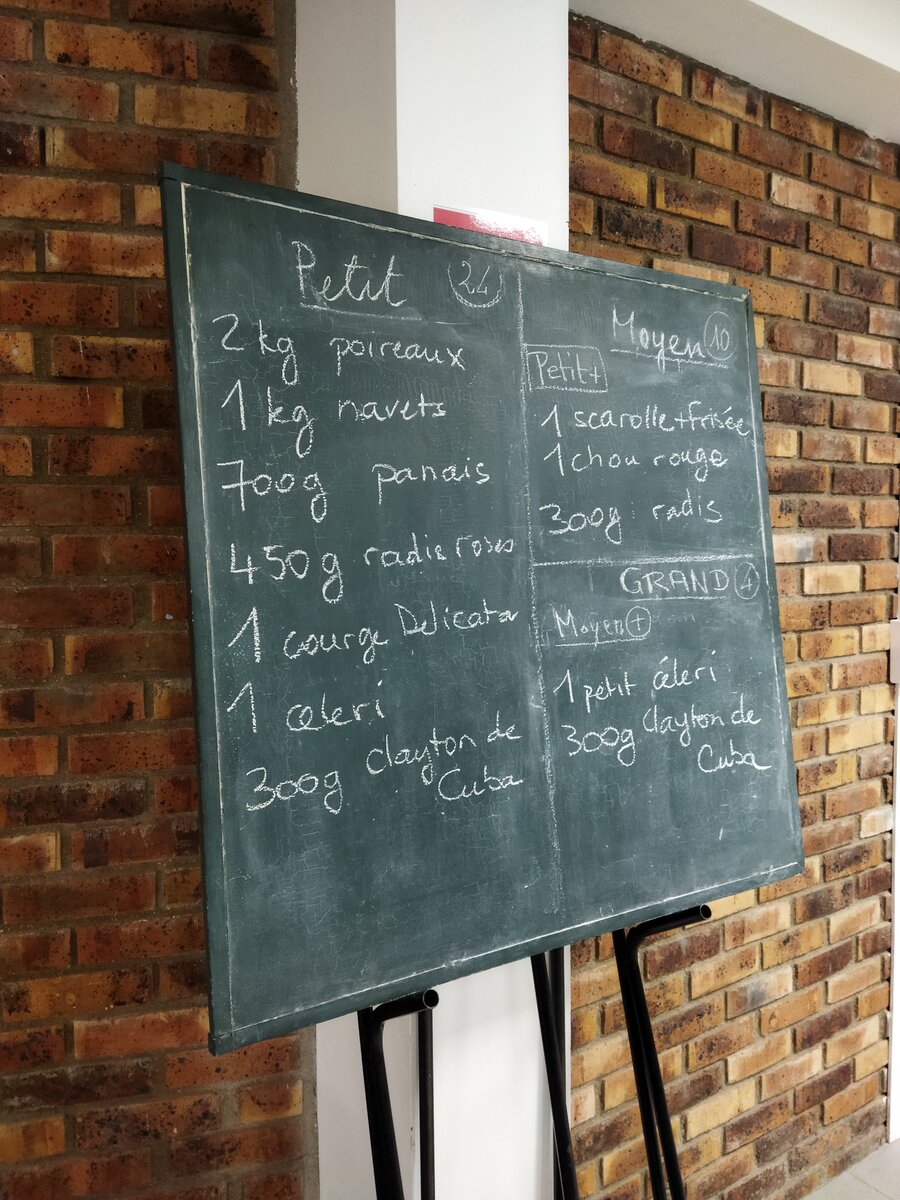 Petit 24
2 kg poireaux
1 kg navets
700g panais
450g radis roses
1 courge Delicata
1 céleri
300g clayton de
Cuba
Moyen 10
Petit+
1 scarolle+frisée
1 chou rouge
300g radis
GRAND 4
Moyen +
1 petit céleri
300g clayton de
Cuba